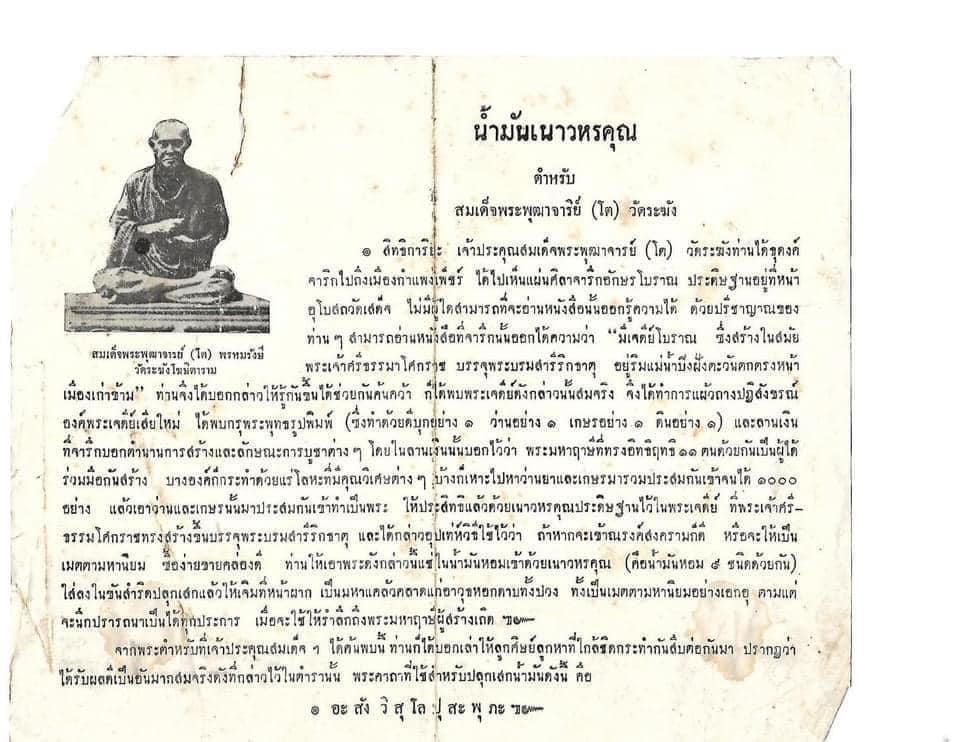 น้ำมันเนาวหรคุณ
ตำหรับ
สมเด็จพระพุฒาจาริย์ (โต) วัดระฆัง
๑ สิทธิการิยะ เจ้าประคุณสมเด็จพระพุฒาจารย์ (โต) วัดระฆังท่านได้ธุดงค์
จาริกไปถึงเมืองกำแพงเพ็ชร์ ได้ไปเห็นแผ่นศิลาจารึกอักษรโบราณ ประดิษฐานอยู่ที่หน้า
อุโบสถวัดเสด็จ ไม่มีผู้ใดสามารถที่จะอ่านหนังสือนั้นออกรู้ความได้ ด้วยปรีชาญาณของ
ท่าน ๆ สามารถอ่านหนังสือที่จารึกนั้นออกได้ความว่า "มีเจดีย์โบราณ ซึ่งสร้างในสมัย
พระเจ้าศรีธรรมาโศกราช บรรจุพระบรมสารีริกธาตุ อยู่ริมแม่น้ำปิงฝั่งตะวันตกตรงหน้า
สมเด็จพระพุฒาจารย์ (โต) พรหมรังษี
วัดระฆังโฆษิตาราม
เมืองเก่าข้าม" ท่านจึงได้บอกกล่าวให้รู้กันขึ้นได้ช่วยกันค้นคว้า ก็ได้พบพระเจดีย์ดังกล่าวนั้นสมจริง จึงได้ทำการแผ้วถางปฏิสังขรณ์
องค์พระเจดีย์เสียใหม่ ได้พบกรุพระพุทธรูปพิมพ์ (ซึ่งทำด้วยดีบุกอย่าง ๑ ว่านอย่าง ๑ เกษรอย่าง ๑ ดินอย่าง ๑) และลานเงิน
ที่จารึกบอกตำนานการสร้างและลักษณะการบูชาต่าง ๆ โดยในลานเงินนั้นบอกไว้ว่า พระมหาฤาษีที่ทรงอิทธิฤทธิ ๑๑ ตนด้วยกันเป็นผู้ได้
ร่วมมือกันสร้าง บางองค์ก็กระทำด้วยแร่โลหะที่มีคุณวิเศษต่าง ๆ บ้างก็เหาะไปหาว่านยาและเกษรมารวมประสมกันเข้าจนได้ ๑๐๐๐
อย่าง แล้วเอาว่านและเกษรนั้นมาประสมกันเข้าทำเป็นพระ ให้ประสิทธิแล้วด้วยเนาวหรคุณประดิษฐานไว้ในพระเจดีย์ ที่พระเจ้าศรี-
ธรรมาโศกราชทรงสร้างขึ้นบรรจุพระบรมสารีริกธาตุ และได้กล่าวอุปเท่ห์วิธีใช้ไว้ว่า ถ้าหากจะเข้าณรงค์สงครามก็ดี หรือจะให้เป็น
เมตตามหานิยม ซื้อง่ายขายคล่องดี ท่านให้เอาพระดังกล่าวนี้แช่ในน้ำมันหอมเข้าด้วยเนาวหรคุณ (คือน้ำมันหอม ๙ ชนิดด้วยกัน)
ใส่ลงในขันสำริดปลุกเสกแล้วให้เจิมที่หน้าผาก เป็นมหาแคล้วคลาดแก่อาวุธหอกดาบทั้งปวง ทั้งเป็นเมตตามหานิยมอย่างเอกอุ ตามแต่
จะนึกปรารถนาเป็นได้ทุกประการ เมื่อจะใช้ให้รำลึกถึงพระมหาฤาษีผู้สร้างเถิด ๚๛
จากพระตำหรับที่เจ้าประคุณสมเด็จ ฯ ได้ค้นพบนี้ ท่านก็ได้บอกเล่าให้ลูกศิษย์ลูกหาที่ใกล้ชิดกระทำกันสืบต่อกันมา ปรากฏว่า
ได้รับผลดีเป็นอันมากสมจริงดังที่กล่าวไว้ในตำรานั้น พระคาถาที่ใช้สำหรับปลุกเสกน้ำมันดังนี้ คือ
๑ อะ สัง วิ สุ โล ปุ สะ พุ ภะ ๚๛